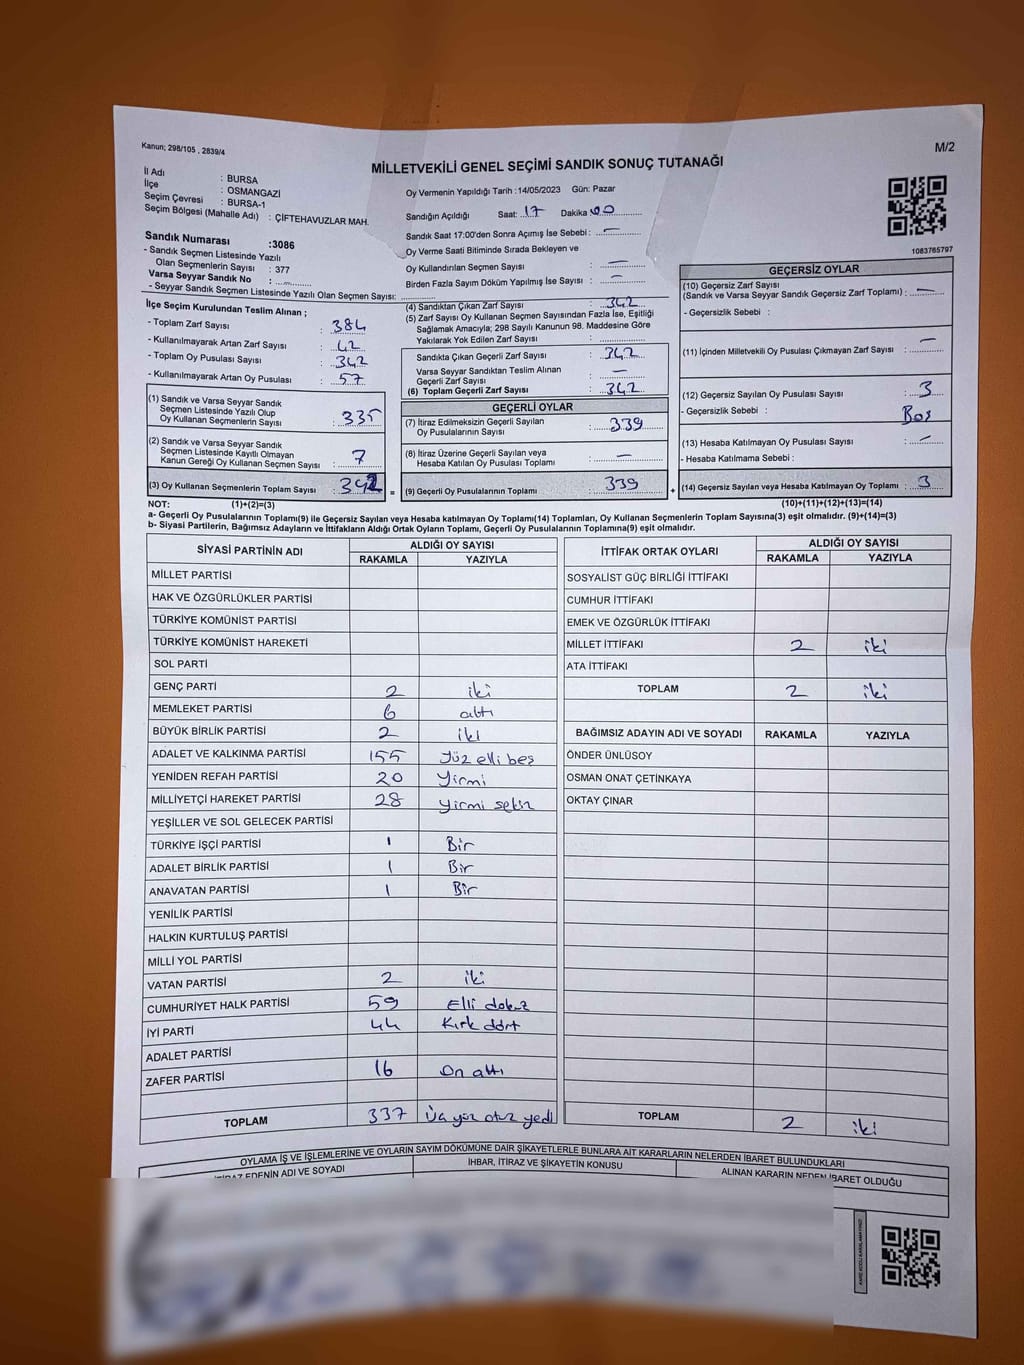 Kanun; 298/105 , 2839/4
M/2
MİLLETVEKİLİ GENEL SEÇİMİ SANDIK SONUÇ TUTANAĞI
İl Adı : BURSA
İlçe : OSMANGAZİ
Seçim Çevresi : BURSA-1
Seçim Bölgesi (Mahalle Adı) : ÇİFTEHAVUZLAR MAH.
Sandık Numarası :3086
- Sandık Seçmen Listesinde Yazılı
Olan Seçmenlerin Sayısı : 377
Varsa Seyyar Sandık No :
- Seyyar Sandık Seçmen Listesinde Yazılı Olan Seçmen Sayısı:
Oy Vermenin Yapıldığı Tarih :14/05/2023 Gün: Pazar
Sandığın Açıldığı Saat: 17 Dakika 00
Sandık Saat 17:00'den Sonra Açımış İse Sebebi : —
Oy Verme Saati Bitiminde Sırada Bekleyen ve
Oy Kullandırılan Seçmen Sayısı : —
Birden Fazla Sayım Döküm Yapılmış İse Sayısı : —
1083765797
İlçe Seçim Kurulundan Teslim Alınan ;
- Toplam Zarf Sayısı : 384
- Kullanılmayarak Artan Zarf Sayısı : 42
- Toplam Oy Pusulası Sayısı : 342
- Kullanılmayarak Artan Oy Pusulası : 57
(1) Sandık ve Varsa Seyyar Sandık
Seçmen Listesinde Yazılı Olup
Oy Kullanan Seçmenlerin Sayısı : 335
(2) Sandık ve Varsa Seyyar Sandık
Seçmen Listesinde Kayıtlı Olmayan
Kanun Gereği Oy Kullanan Seçmen Sayısı : 7
(3) Oy Kullanan Seçmenlerin Toplam Sayısı : 342 =
(4) Sandıktan Çıkan Zarf Sayısı : 342
(5) Zarf Sayısı Oy Kullanan Seçmen Sayısından Fazla İse, Eşitliği
Sağlamak Amacıyla; 298 Sayılı Kanunun 98. Maddesine Göre
Yakılarak Yok Edilen Zarf Sayısı :
Sandıkta Çıkan Geçerli Zarf Sayısı : 342
Varsa Seyyar Sandıktan Teslim Alınan
Geçerli Zarf Sayısı : —
(6) Toplam Geçerli Zarf Sayısı : 342
GEÇERLİ OYLAR
(7) İtiraz Edilmeksizin Geçerli Sayılan
Oy Pusulalarının Sayısı : 339
(8) İtiraz Üzerine Geçerli Sayılan veya
Hesaba Katılan Oy Pusulası Toplamı : —
(9) Geçerli Oy Pusulalarının Toplamı : 339 +
GEÇERSİZ OYLAR
(10) Geçersiz Zarf Sayısı
(Sandık ve Varsa Seyyar Sandık Geçersiz Zarf Toplamı) : —
- Geçersizlik Sebebi :
(11) İçinden Milletvekili Oy Pusulası Çıkmayan Zarf Sayısı : —
(12) Geçersiz Sayılan Oy Pusulası Sayısı : 3
- Geçersizlik Sebebi : Boş
(13) Hesaba Katılmayan Oy Pusulası Sayısı : —
- Hesaba Katılmama Sebebi :
(14) Geçersiz Sayılan veya Hesaba Katılmayan Oy Toplamı : 3
NOT: (1)+(2)=(3) (10)+(11)+(12)+(13)=(14)
a- Geçerli Oy Pusulalarının Toplamı(9) ile Geçersiz Sayılan veya Hesaba katılmayan Oy Toplamı(14) Toplamları, Oy Kullanan Seçmenlerin Toplam Sayısına(3) eşit olmalıdır. (9)+(14)=(3)
b- Siyasi Partilerin, Bağımsız Adayların ve İttifakların Aldığı Ortak Oyların Toplamı, Geçerli Oy Pusulalarının Toplamına(9) eşit olmalıdır.
SİYASİ PARTİNİN ADI ALDIĞI OY SAYISI
RAKAMLA YAZIYLA
MİLLET PARTİSİ
HAK VE ÖZGÜRLÜKLER PARTİSİ
TÜRKİYE KOMÜNİST PARTİSİ
TÜRKİYE KOMÜNİST HAREKETİ
SOL PARTİ
GENÇ PARTİ 2 iki
MEMLEKET PARTİSİ 6 altı
BÜYÜK BİRLİK PARTİSİ 2 iki
ADALET VE KALKINMA PARTİSİ 155 Yüz elli beş
YENİDEN REFAH PARTİSİ 20 Yirmi
MİLLİYETÇİ HAREKET PARTİSİ 28 Yirmi sekiz
YEŞİLLER VE SOL GELECEK PARTİSİ
TÜRKİYE İŞÇİ PARTİSİ 1 Bir
ADALET BİRLİK PARTİSİ 1 Bir
ANAVATAN PARTİSİ 1 Bir
YENİLİK PARTİSİ
HALKIN KURTULUŞ PARTİSİ
MİLLİ YOL PARTİSİ
VATAN PARTİSİ 2 iki
CUMHURİYET HALK PARTİSİ 59 Elli dokuz
İYİ PARTİ 44 Kırk dört
ADALET PARTİSİ
ZAFER PARTİSİ 16 On altı
TOPLAM 337 Üç yüz otuz yedi
İTTİFAK ORTAK OYLARI ALDIĞI OY SAYISI
RAKAMLA YAZIYLA
SOSYALİST GÜÇ BİRLİĞİ İTTİFAKI
CUMHUR İTTİFAKI
EMEK VE ÖZGÜRLÜK İTTİFAKI
MİLLET İTTİFAKI 2 iki
ATA İTTİFAKI
TOPLAM 2 iki
BAĞIMSIZ ADAYIN ADI VE SOYADI RAKAMLA YAZIYLA
ÖNDER ÜNLÜSOY
OSMAN ONAT ÇETİNKAYA
OKTAY ÇINAR
TOPLAM 2 iki
OYLAMA İŞ VE İŞLEMLERİNE VE OYLARIN SAYIM DÖKÜMÜNE DAİR ŞİKAYETLERLE BUNLARA AİT KARARLARIN NELERDEN İBARET BULUNDUKLARI
İTİRAZ EDENİN ADI VE SOYADI İHBAR, İTİRAZ VE ŞİKAYETİN KONUSU ALINAN KARARIN NEDEN İBARET OLDUĞU